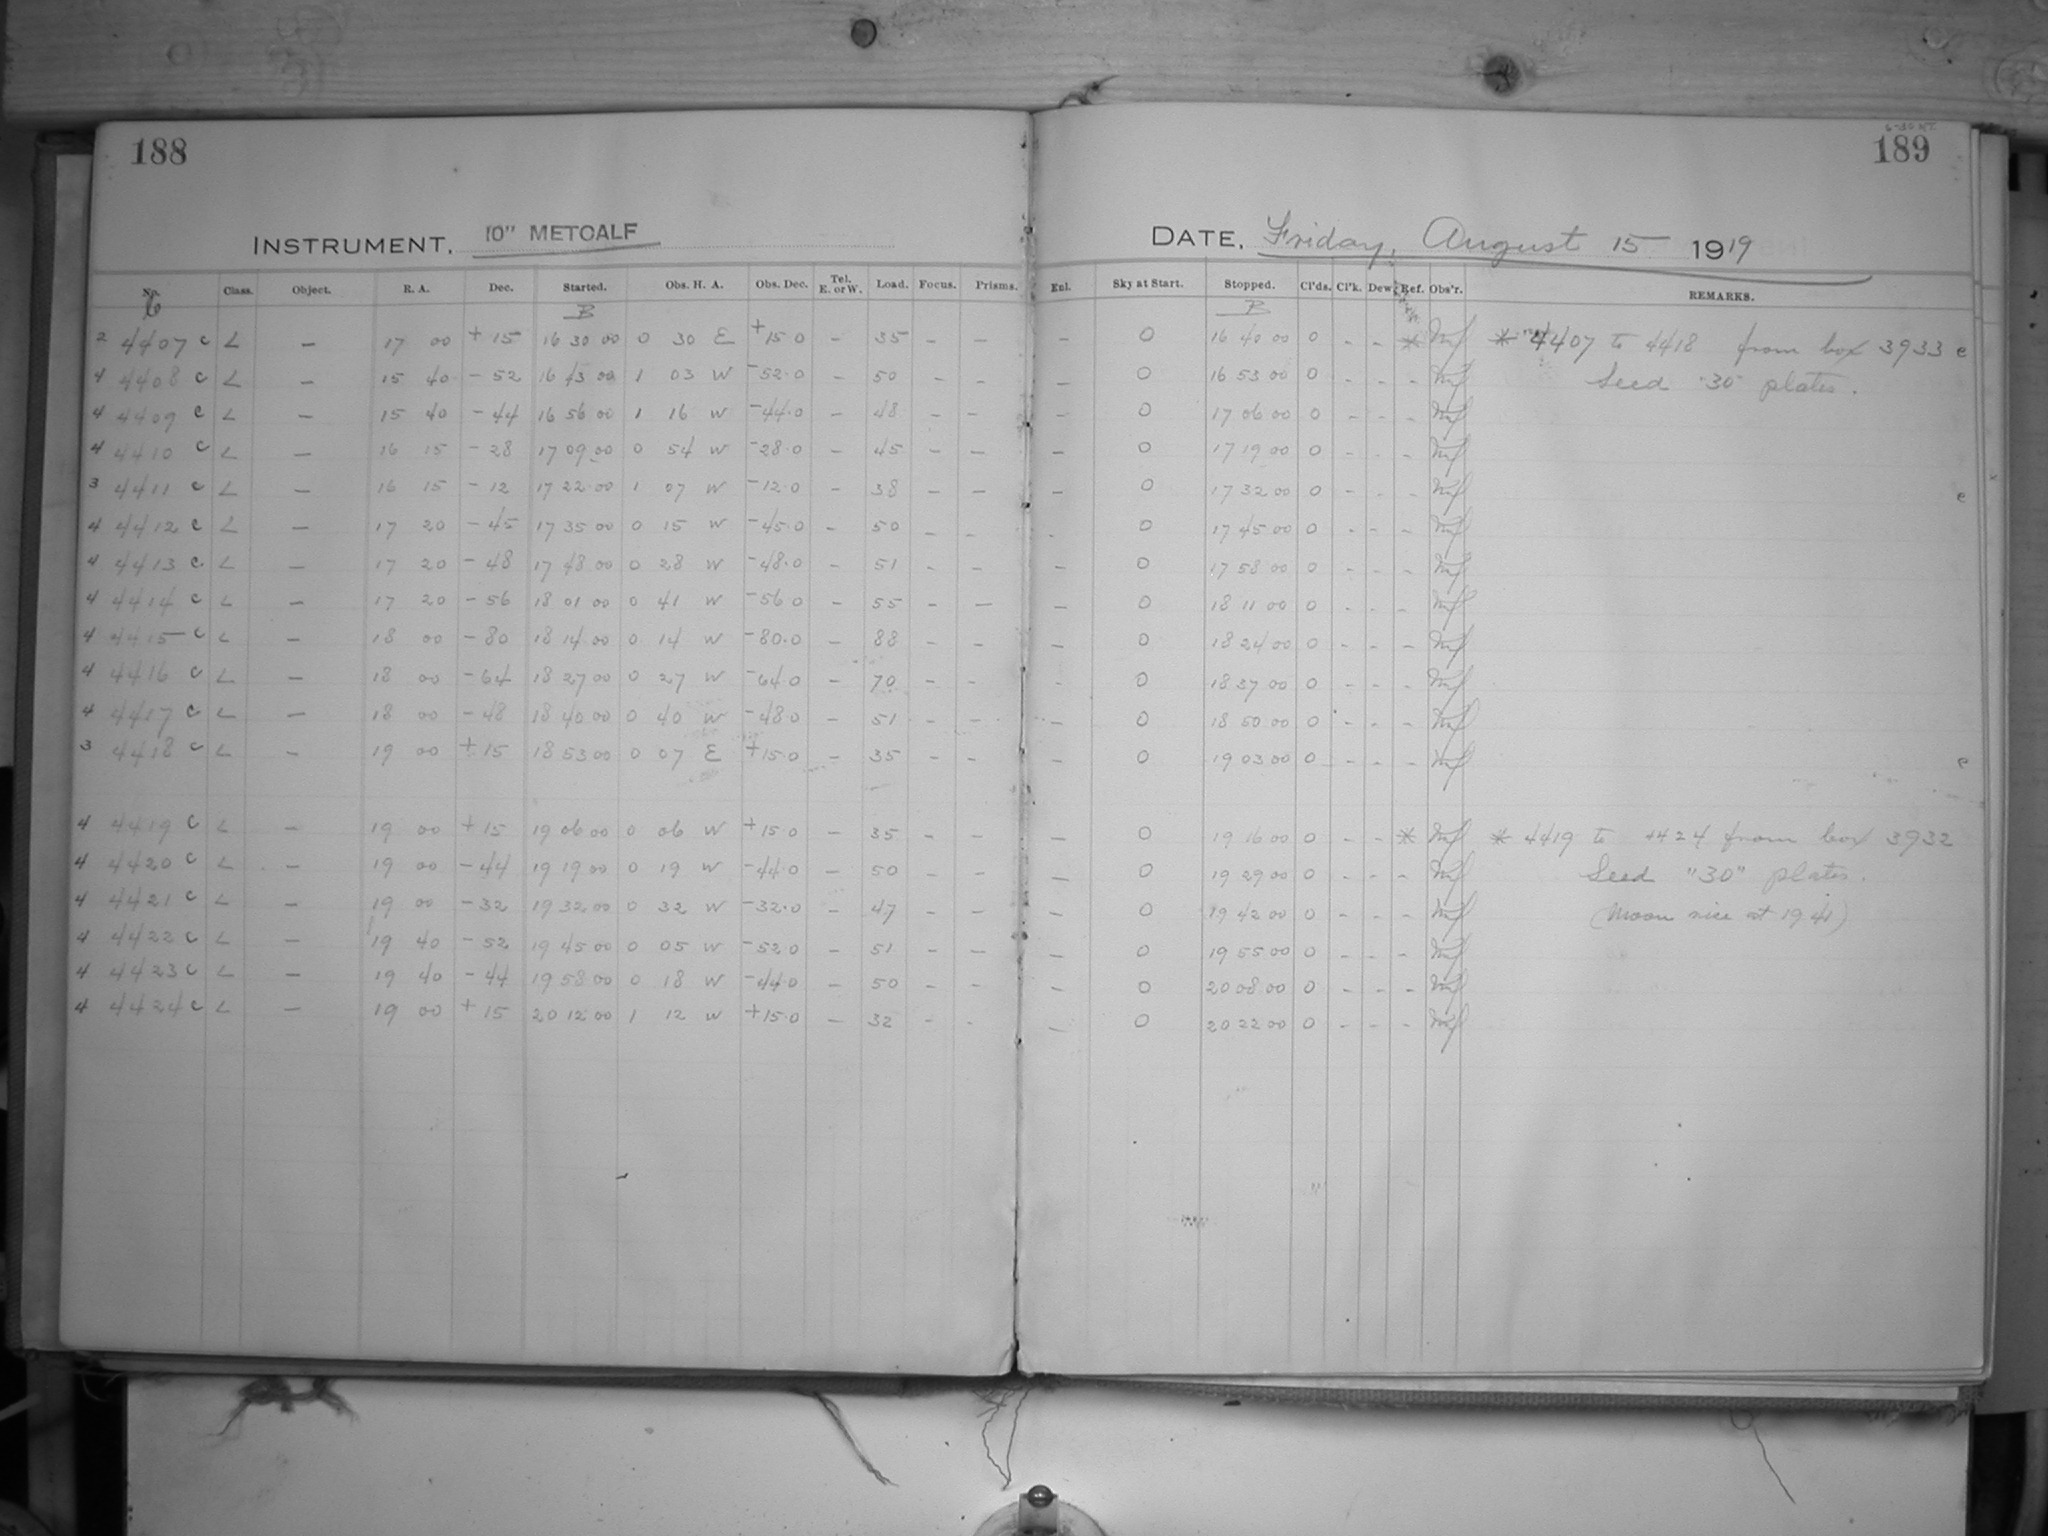 188
INSTRUMENT, 10" METCALF
No. Class. Object. R. A. Dec. Started. Obs. H. A. Obs. Dec. Tel. E. or W. Load. Focus. Prisms.
B
2 4407 c L — 17 00 +15 16 30 00 0 30 E +15.0 – 35 – –
4 4408 c L — 15 40 –52 16 43 00 1 03 W –52.0 – 50 – –
4 4409 c L — 15 40 –44 16 56 00 1 16 W –44.0 – 48 – –
4 4410 c L — 16 15 –28 17 09 00 0 54 W –28.0 – 45 – –
3 4411 c L — 16 15 –12 17 22 00 1 07 W –12.0 – 38 – –
4 4412 c L — 17 20 –45 17 35 00 0 15 W –45.0 – 50 – –
4 4413 c L — 17 20 –48 17 48 00 0 28 W –48.0 – 51 – –
4 4414 c L — 17 20 –56 18 01 00 0 41 W –56.0 – 55 – –
4 4415 c L — 18 00 –80 18 14 00 0 14 W –80.0 – 88 – –
4 4416 c L — 18 00 –64 18 27 00 0 27 W –64.0 – 70 – –
4 4417 c L — 18 00 –48 18 40 00 0 40 W –48.0 – 51 – –
3 4418 c L — 19 00 +15 18 53 00 0 07 E +15.0 – 35 – –
4 4419 c L — 19 00 +15 19 06 00 0 06 W +15.0 – 35 – –
4 4420 c L — 19 00 –44 19 19 00 0 19 W –44.0 – 50 – –
4 4421 c L — 19 00 –32 19 32 00 0 32 W –32.0 – 47 – –
4 4422 c L — 19 40 –52 19 45 00 0 05 W –52.0 – 51 – –
4 4423 c L — 19 40 –44 19 58 00 0 18 W –44.0 – 50 – –
4 4424 c L — 19 00 +15 20 12 00 1 12 W +15.0 – 32 – –
189
DATE, Friday, August 15 1919
Enl. Sky at Start. Stopped. Cl'ds. Cl'k. Dew. Ref. Obs'r. REMARKS.
B
– 0 16 40 00 0 – – * * 4407 to 4418 from box 3933 e
– 0 16 53 00 0 – – – Seed "30" plates.
– 0 17 06 00 0 – – –
– 0 17 19 00 0 – – –
– 0 17 32 00 0 – – – e
– 0 17 45 00 0 – – –
– 0 17 58 00 0 – – –
– 0 18 11 00 0 – – –
– 0 18 24 00 0 – – –
– 0 18 37 00 0 – – –
– 0 18 50 00 0 – – –
– 0 19 03 00 0 – – – e
– 0 19 16 00 0 – – * * 4419 to 4424 from box 3932
– 0 19 29 00 0 – – – Seed "30" plates.
– 0 19 42 00 0 – – – (Moon rise at 19 41)
– 0 19 55 00 0 – – –
– 0 20 08 00 0 – – –
– 0 20 22 00 0 – – –